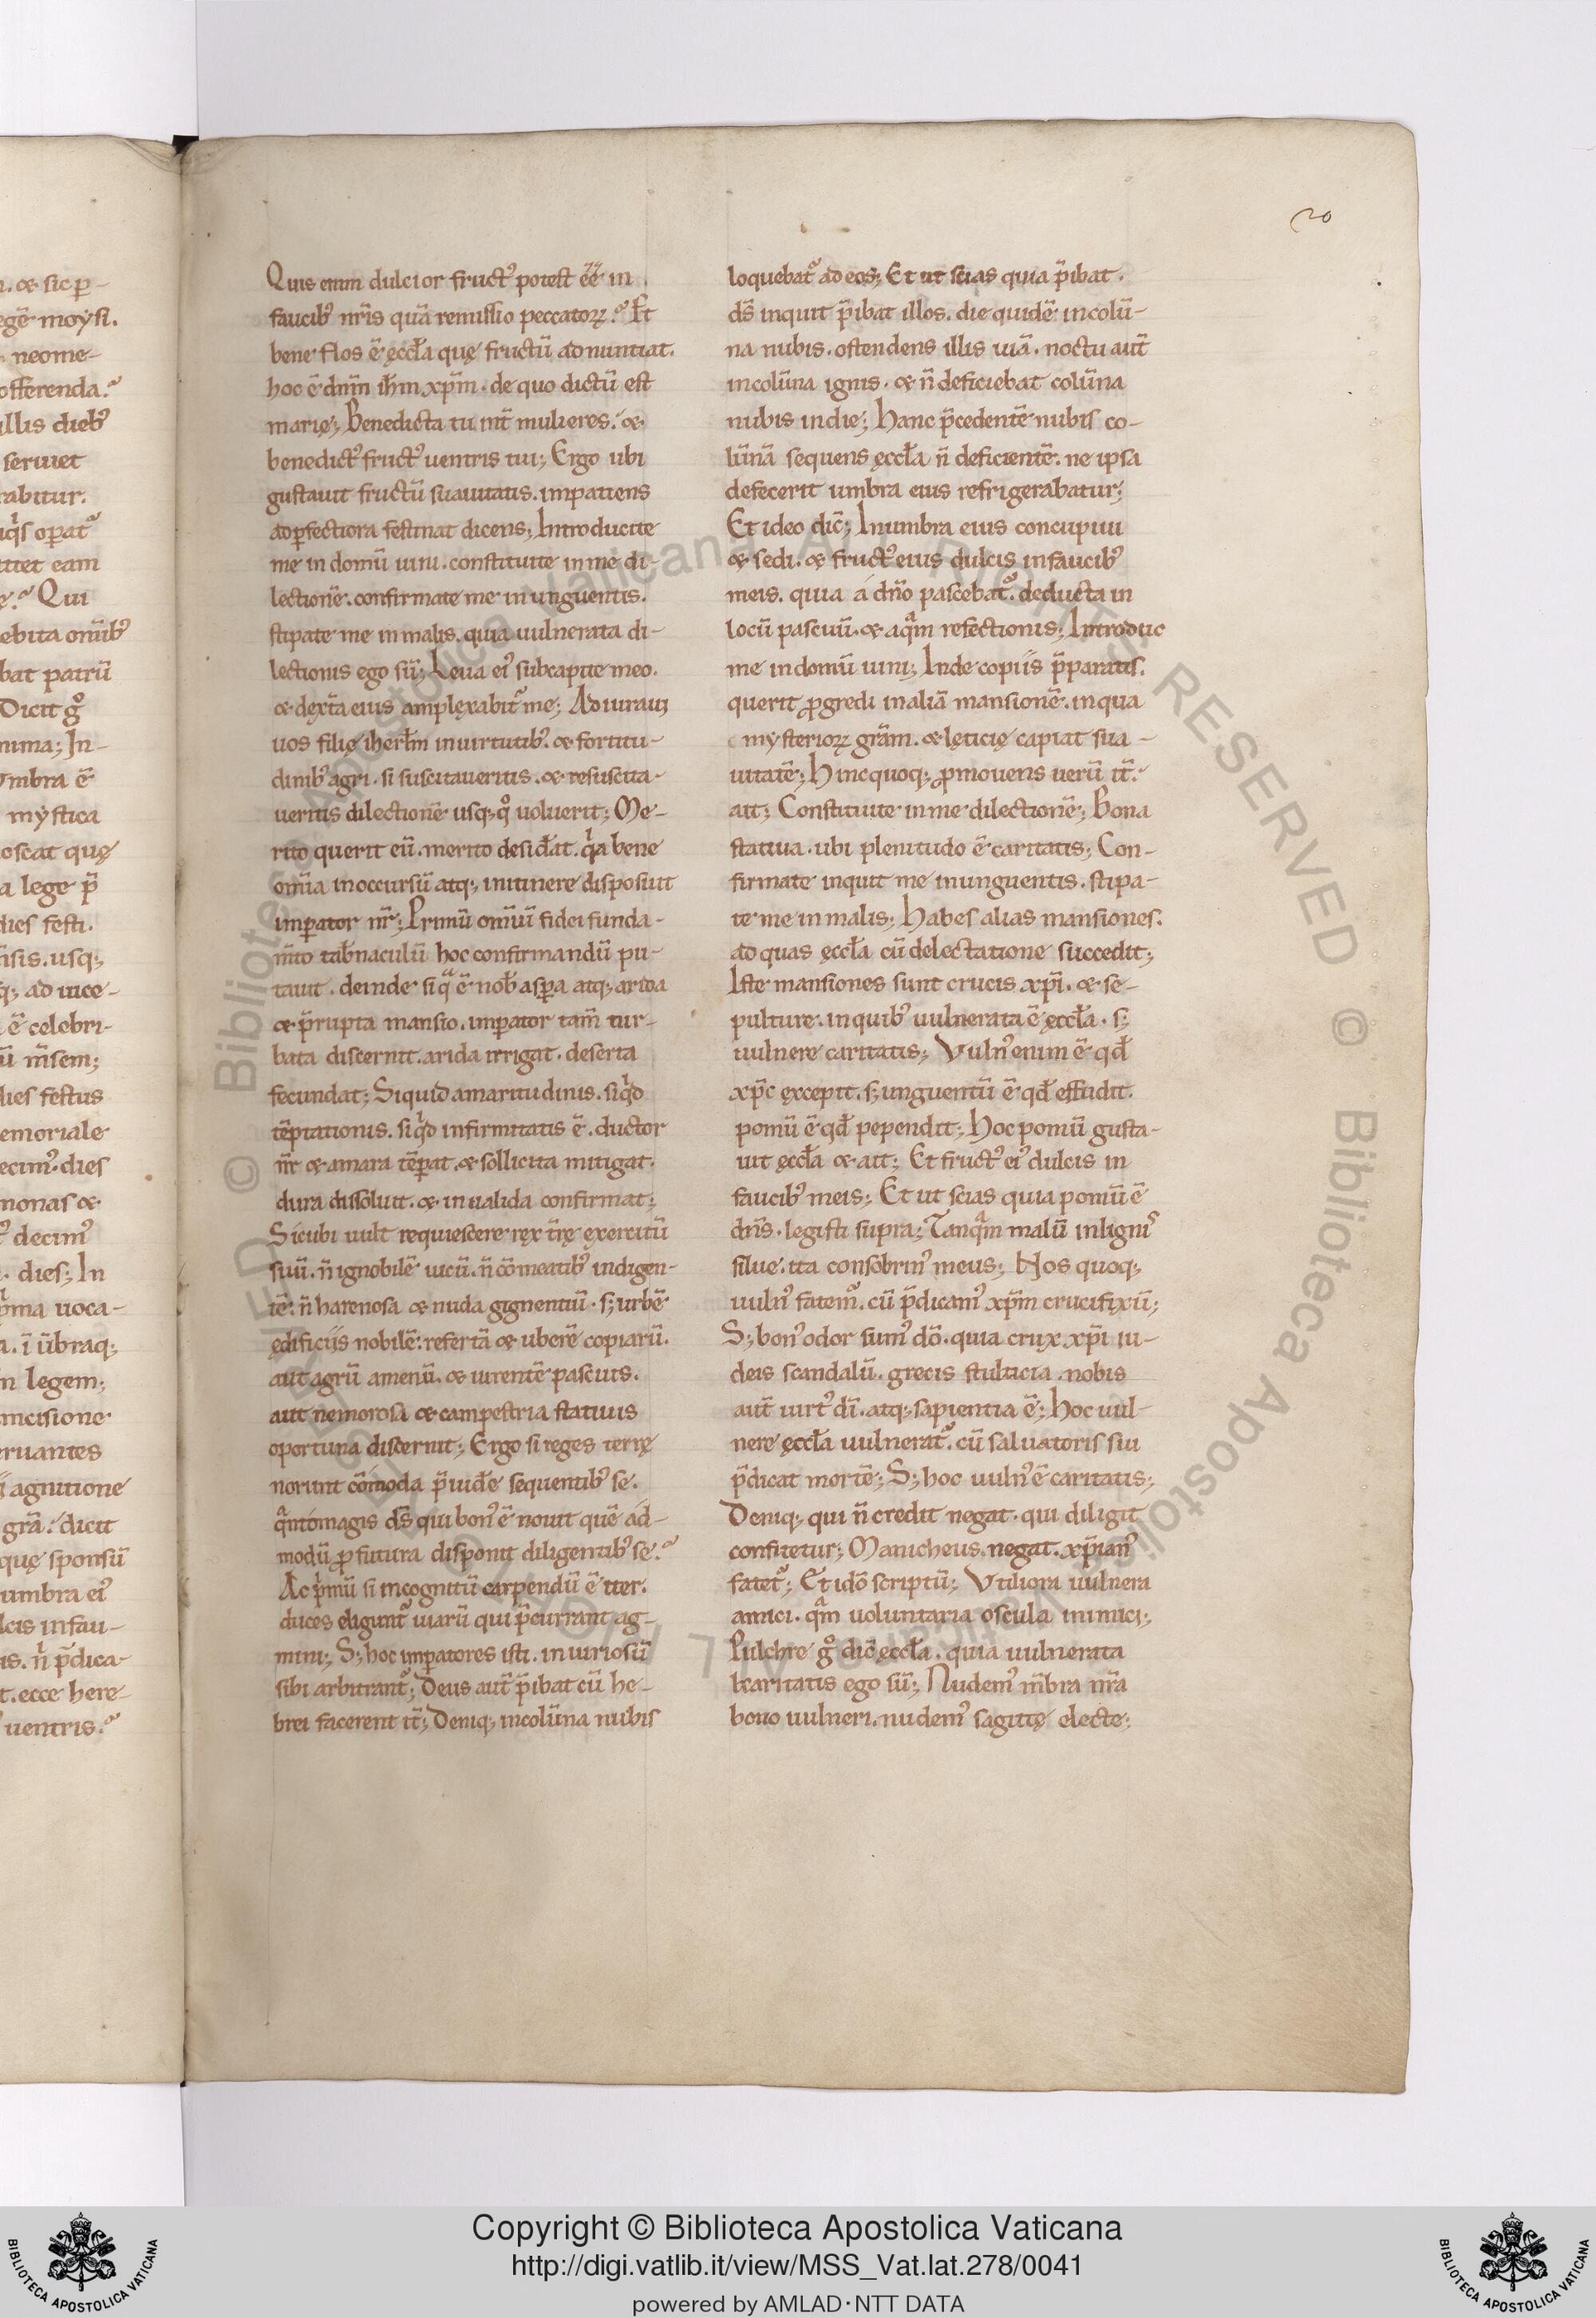 20
Quis enim dulcior fruct᾽ potest ēē in
faucib᾽ nr̄is quā remissio peccatoꝝ? Et
bene flos ē ęccl̄a quę fructū adnuntiat.
hoc ē dnm̄ ih̄m xp̄m. de quo dictū est
marię; Benedicta tu int̄ mulieres. &
benedict᾽ fruct᾽ uentris tui; Ergo ubi
gustauit fructū suauitatis. impatiens
adꝑfectiora festinat dicens; Introducite
me in domū uini. constituite in me di-
lectionē. confirmate me in unguentis.
stipate me in malis. quia uulnerata di-
lectionis ego sū; Leua ei᾽ sub capite meo.
& dęxt̄a eius amplęxabit᾽ me; Adiuraui
uos filię iherl̄m in uirtutib᾽. & fortitu-
dinib᾽ agri. si suscitaueritis. & resuscita-
ueritis dilectionē usq; qͦ uoluerit; Me-
rito querit eū. merito desid̄at. qⁱa bene
om̄ia in occursū atq; in itinere disposuit
imꝑator nr̄; Primū om̄iū fidei funda-
m̄to tab̄naculū hoc confirmandū pu-
tauit. deinde si qᵃ ē nob̄ asꝑa atq; arida
& p̄rupta mansio. imꝑator tam̄ tur-
bata discernit. arida irrigat. deserta
fecundat; Siquid amaritudinis. siqⁱd
tēptationis. siqⁱd infirmitatis ē. ductor
nr̄ & amara tēꝑat. & sollicita mitigat.
dura dissoluit. & inualida confirmat;
Sicubi uult requiescere ręx t̄rę exercitū
suū. n̄ ignobilē uicū. n̄ cōmeatib᾽ indigen-
tē. n̄ harenosa & nuda gignentiū. s; urbē
ędificiis nobilē. refertā & uberē copiarū.
aut agrū amenū. & uirentē pascuis.
aut nemorosa & campestria statiuis
oportuna discernit; Ergo si reges terrę
norunt cōmoda p̄uid̄e sequentib᾽ se.
qᵃnto magis ds̄ qui bon᾽ ē nouit quē ad-
modū ꝓfutura disponit diligentib᾽ se?
Ac pⁱmū si incognitū carpendū ē iter.
duces eligunt᾽ uiarū qui p̄currant ag-
mini; S; hoc imꝑatores isti. iniuriosū
sibi arbitrant᾽; Deus aut̄ p̄ibat cū he-
brei facerent it̄; Deniq; incolūna nubis
loquebat᾽ ad eos; Et ut scias quia p̄ibat.
ds̄ inquit p̄ibat illos. die quidē in colū-
na nubis. ostendens illis uiā. noctu aut̄
in colūna ignis. & n̄ deficiebat colūna
nubis in die; Hanc p̄cedentē nubis co-
lūnā sequens ęccl̄a n̄ deficientē. ne ipsa
defecerit umbra eius refrigerabatur;
Et ideo dic̄; Inumbra eius concupiui
& sedi. & fruct᾽ eius dulcis infaucib᾽
meis. quia á dn̄o pascebat᾽. deducta in
locū pascuū. & aqᵃm refectionis; Introduc
me in domū uini; Inde copiis p̄paratis.
querit ꝓgredi in aliā mansionē. in qua
mysterioꝝ grām. & lęticię capiat sua-
uitatē; Hinc quoq; ꝓmouens uerū it̄.
ait; Constituite in me dilectionē; Bona
statiua. ubi plenitudo ē caritatis; Con-
firmate inquit me in unguentis. stipa-
te me in malis; Habes alias mansiones.
ad quas ęccl̄a cū delectatione succedit;
Iste mansiones sunt crucis xp̄i. & se-
pulture. in quib᾽ uulnerata ē ęccl̄a. s;
uulnere caritatis; Vuln᾽ enim ē qd̄
xp̄c ęxcepit. s; unguentū ē qd̄ effudit.
pomū ē qd̄ pependit; Hoc pomū gusta-
uit ęccl̄a & ait; Et fruct᾽ ei᾽ dulcis in
faucib᾽ meis; Et ut scias quia pomū ē
dn̄s. legisti supra; Tanqᵃm malū in lignis
silue. ita consobrin᾽ meus; Nos quoq;
uuln᾽ fatem᾽. cū p̄dicam᾽ xp̄m crucifixū;
S; bon᾽ odor sum᾽ dō. quia crux xp̄i iu-
deis scandalū. grecis stulticia. nobis
aut̄ uirt᾽ dī. atq; sapientia ē; Hoc uul-
nere ęccl̄a uulnerat᾽. cū saluatoris sui
p̄dicat mortē; S; hoc uuln᾽ ē caritatis;
Deniq; qui n̄ credit negat. qui diligit
confitetur; Manicheus negat. xp̄ian᾽
fatet᾽; Et idō scriptū; Vtiliora uulnera
amici. qᵃm uoluntaria oscula inimici;
Pulchre gͦ dic̄ ęccl̄a. quia uulnerata
caritatis ego sū; Nudem᾽ m̄bra nr̄a
bono uulneri. nudem᾽ sagittę electe;
Copyright © Biblioteca Apostolica Vaticana
http://digi.vatlib.it/view/MSS_Vat.lat.278/0041
powered by AMLAD·NTT DATA
BIBLIOTECA APOSTOLICA VATICANA
BIBLIOTECA APOSTOLICA VATICANA